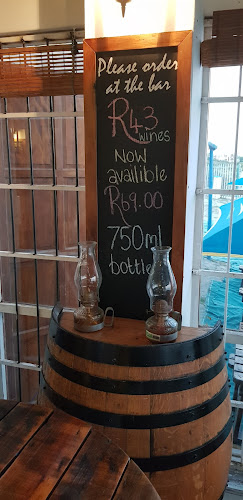 Please order
at the bar
R43
wines
Now
availible
R69.00
750ml
bottle